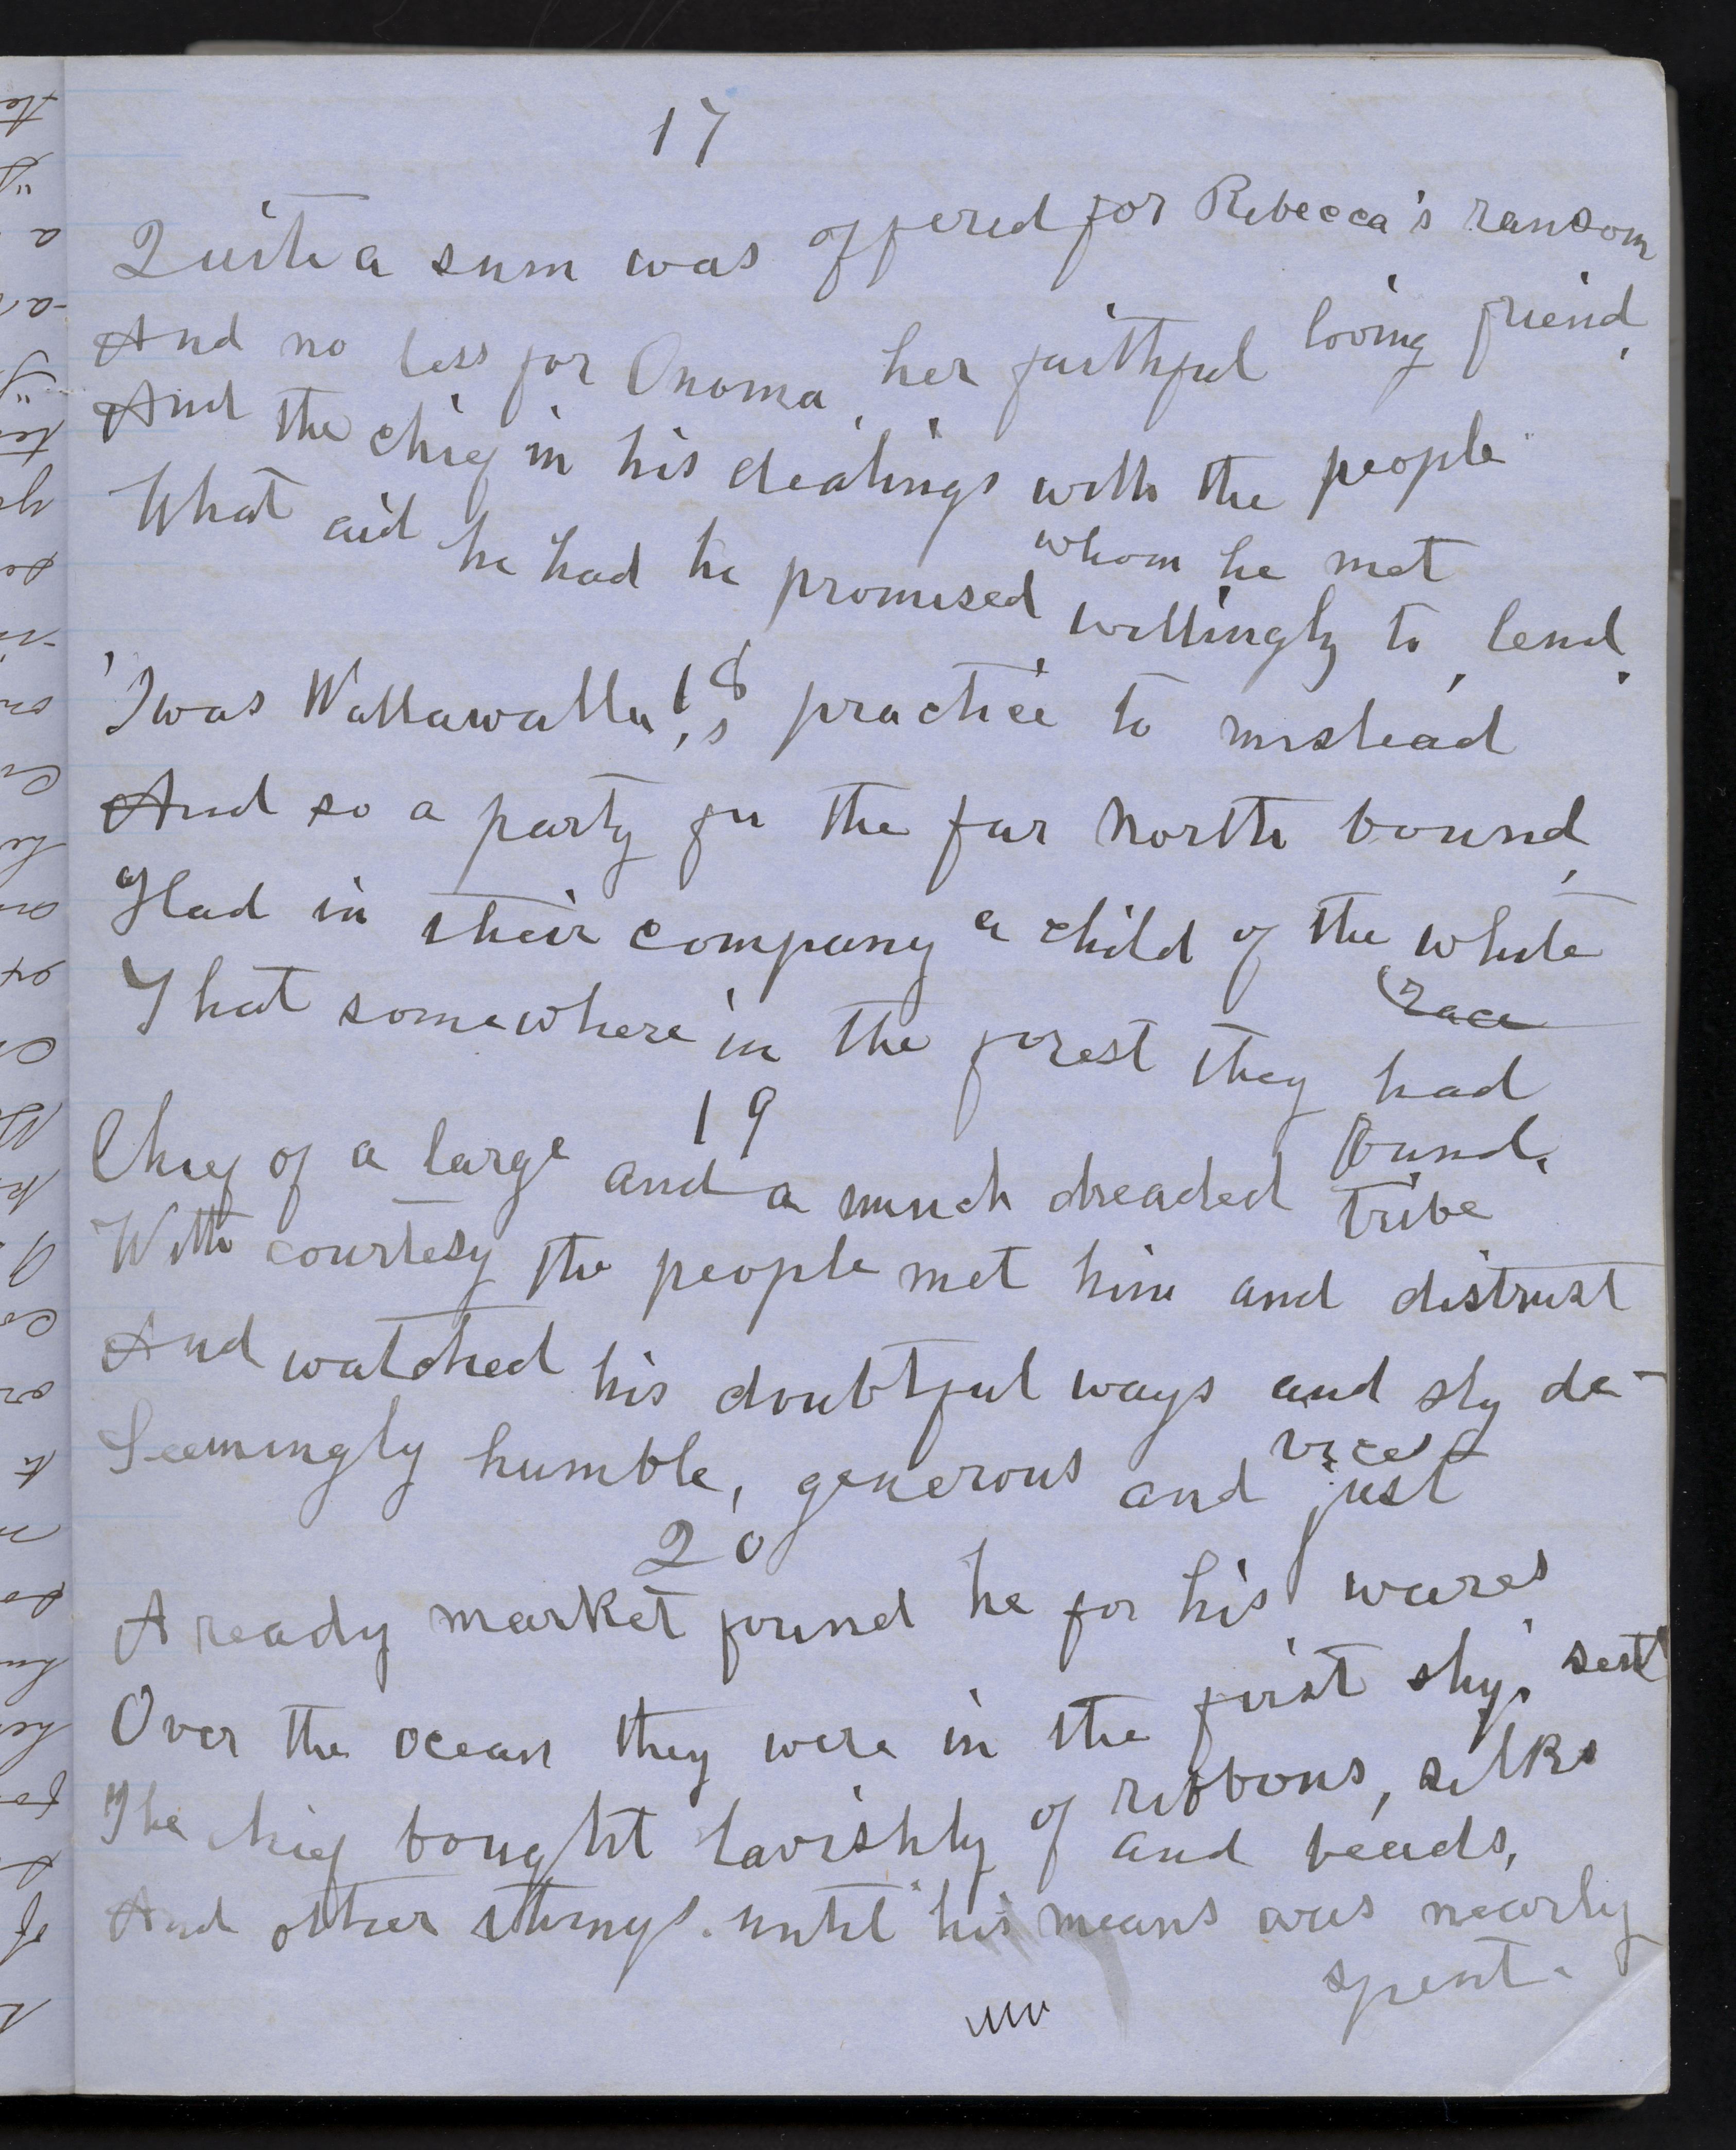 17
Quite a sum was offered for Rebecca's ransom
And no less for Onoma, her faithful loving friend,
And the chief in his dealings with the people
whom he met
What aid he had he promised willingly to lend.
18
'Twas Wallawalla's practice to mislead
And so a party for the far North bound,
Had in their company a child of the white
(race
That somewhere in the forest they had
found.
19
Chief of a large and a much dreaded tribe
With courtesy the people met him and distrust
And watched his doubtful ways and sly de-
vices
Seemingly humble, generous and just
20
A ready market found he for his wares
Over the ocean they were in the first ship sent
The chief bought lavishly of ribbons, silks
and beads,
And other things until his means was nearly
spent.